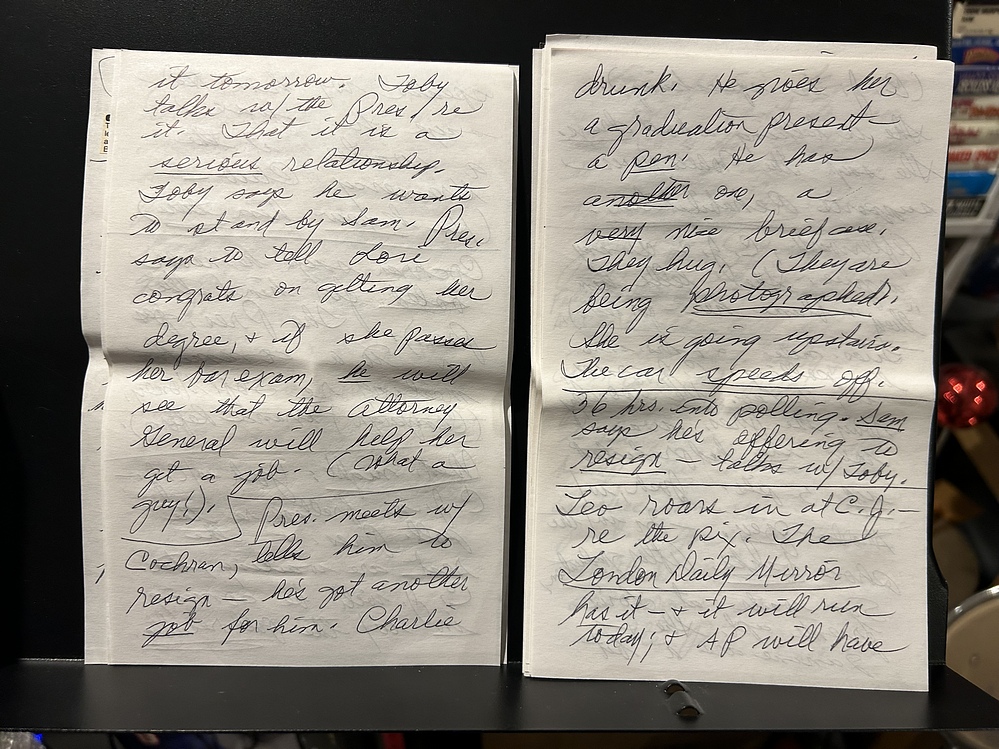 it tomorrow. Toby
talks w/ the Pres/re
it. That it is a
serious relationship.
Toby says he wants
to stand by Sam. Pres.
says to tell Lori
congrats on getting her
degree, & if she passes
her bar exam, he will
see that the attorney
General will help her
get a job. (What a
guy!). Pres. meets w/
Cochran, tells him to
resign — he's got another
job for him. Charlie
drunk. He gives her
a graduation present —
a pen. He has
another one, a
very nice briefcase.
They hug. (They are
being photographed).
She is going upstairs.
The car speeds off.
36 hrs. into polling. Sam
says he's offering to
resign — talks w/ Toby.
Leo roars in at C.J. —
re the pix. The
London Daily Mirror
has it — & it will run
today; & AP will have